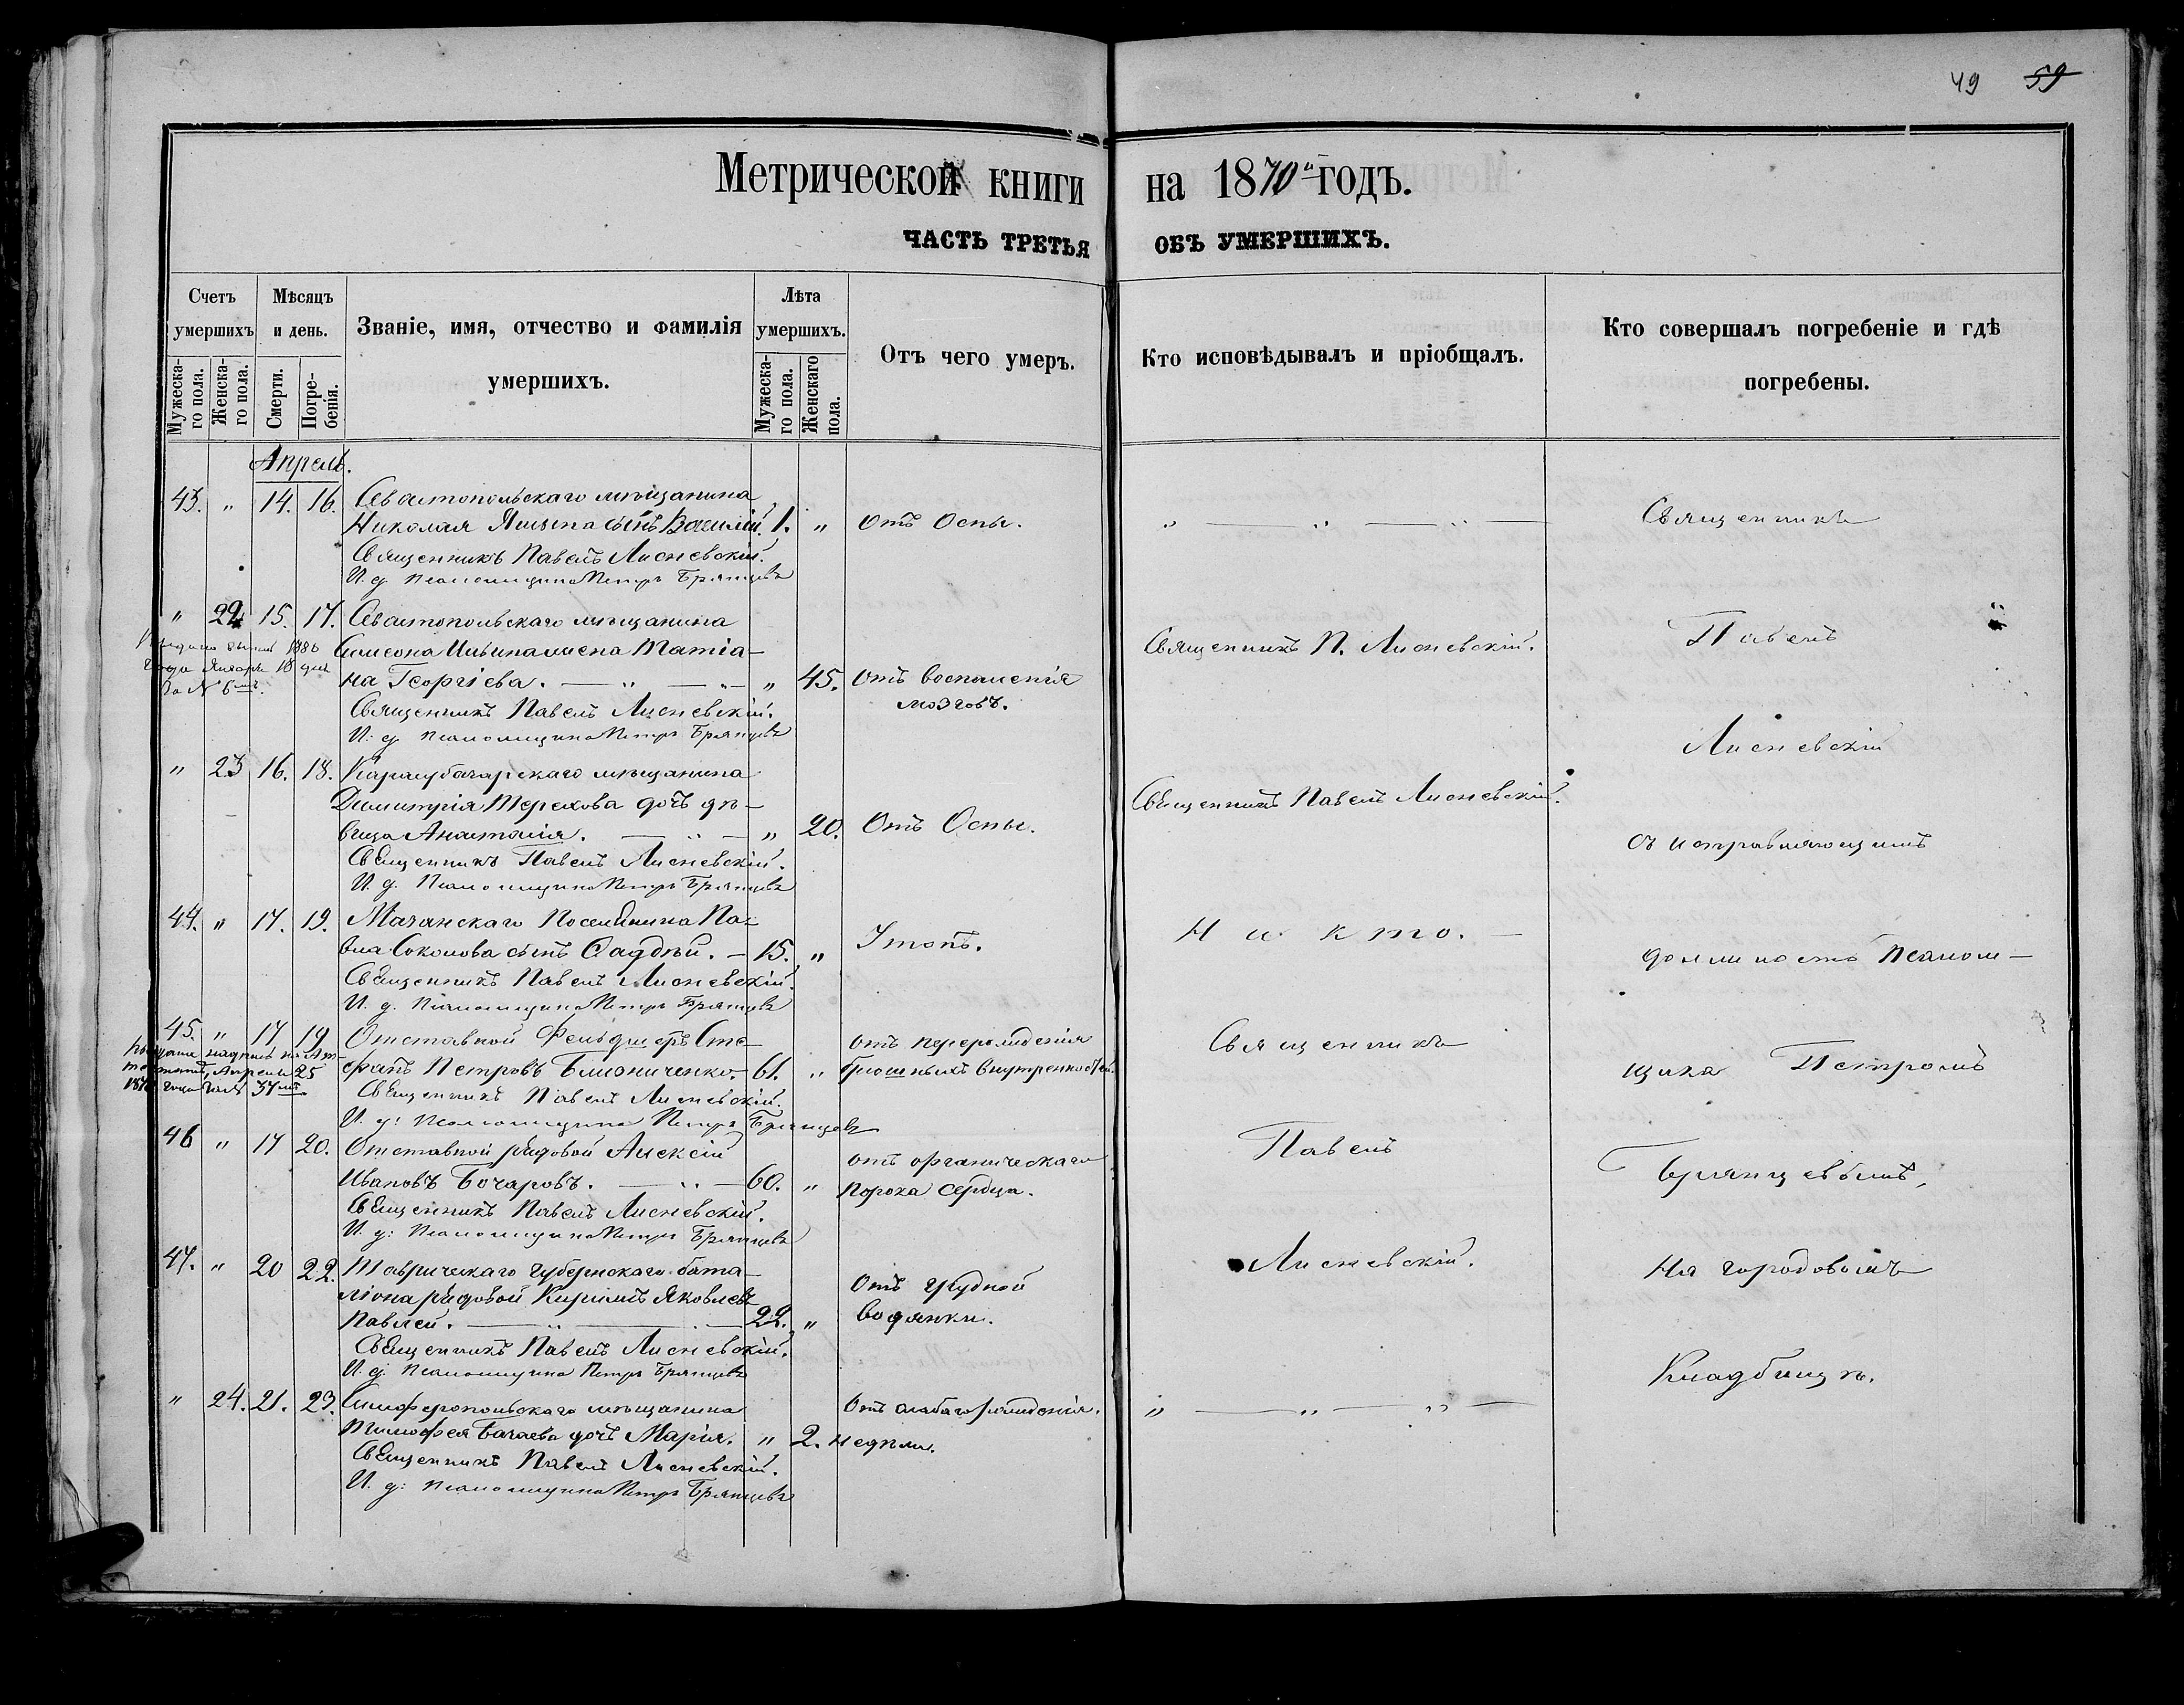 49 59
Метрической книги на 1870й годъ.
ЧАСТЬ ТРЕТЬЯ ОБЪ УМЕРШИХЪ.
Счетъ умершихъ
Мѣсяцъ и день.
Званіе, имя, отчество и фамилія умершихъ.
Лѣта умершихъ.
Отъ чего умеръ.
Кто исповѣдывалъ и пріобщалъ.
Кто совершалъ погребеніе и гдѣ погребены.
Мужескаго пола.
Женскаго пола.
Смерти.
Погребенія.
Мужескаго пола.
Женскаго пола.
Апрель.
43. " 14. 16. Севастопольскаго мѣщанина
Николая Яшина сынъ Василій. 1. " отъ Оспы.
Священникъ Павелъ Лисневскій.
И. д. Псаломщика Петръ Брянцевъ
" 22 15. 17. Севастопольскаго мѣщанина
Симеона Ильина жена Татіа-
на Георгіева. — " — " 45. отъ воспаленія
мозговъ.
1880
Января 18 дня
За № 6
Священникъ Павелъ Лисневскій.
И. д. Псаломщика Петръ Брянцевъ
" 23 16. 18. Карасубазарскаго мѣщанина
Димитрія Терехова дочь дѣ-
вица Анастасія. — " — " 20. Отъ Оспы.
Священникъ Павелъ Лисневскій.
И. д. Псаломщика Петръ Брянцевъ
44. " 17. 19. Поселянина Па-
вла Соколова сынъ Фаддѣй. — 15. " Утопъ.
Священникъ Павелъ Лисневскій.
И. д. Псаломщика Петръ Брянцевъ
45. " 17 19 Отставной Фельдшеръ Сте-
фанъ Петровъ 61. "
отъ перерожденія
брюшныхъ внутренностей.
Апреля 25
Священникъ Павелъ Лисневскій.
И. д: Псаломщика Петръ Брянцевъ
46 " 17 20. Отставной рядовой Алексій
Ивановъ Бочаровъ. — " — 60. "
отъ органическаго
порока сердца.
Священникъ Павелъ Лисневскій.
И. д: Псаломщика Петръ Брянцевъ
47. " 20 22. Таврическаго губернскаго бата-
ліона рядовой Кириллъ Яковлевъ
Павлей. — " — 22. "
Отъ грудной
водянки.
Священникъ Павелъ Лисневскій.
И. д. Псаломщика Петръ Брянцевъ
" 24. 21. 23. Симферопольскаго мѣщанина
Тимофея Бачаева дочь Марія. " 2. недѣли.
Отъ слабаго рожденія.
Священникъ Павелъ Лисневскій.
И. д: Псаломщика Петръ Брянцевъ
" — " — " —
Священникъ П. Лисневскій.
Священникъ Павелъ Лисневскій.
Никто. —
Священникъ
Павелъ
Лисневскій.
" — " — " —
Священникъ
Павелъ
Лисневскій
съ исправляющимъ
должность Псалом-
щика Петромъ
Брянцевымъ,
На городовомъ
Кладбищѣ.